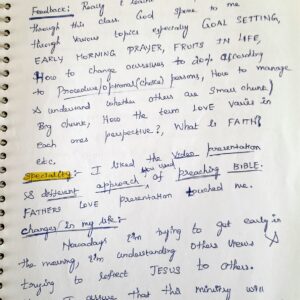 Feedback: Really I learnt
through this class. God spoke to me
through various topics especially GOAL SETTING,
EARLY MORNING PRAYER, FRUITS IN LIFE,
How to change ourselves to do according
to Procedure/Optional(choice) persons, How to manage
& understand whether others are Small chunk/
Big chunk, How the term LOVE varies in
each ones perspective?, What is FAITH
etc.
Speciality:- I liked the video presentation
&& different approach you used of preaching BIBLE.
FATHERS LOVE presentation touched me.
changes in my life:-
Nowadays I'm trying to get early in
the morning, I'm understanding others views &
trying to reflect JESUS to others.
I assure that this ministry will